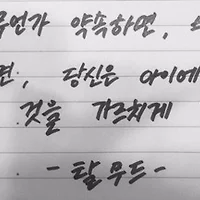 무언가 약속하면,
면, 당신은 아이에
것을 가르치게
- 탈무드 -